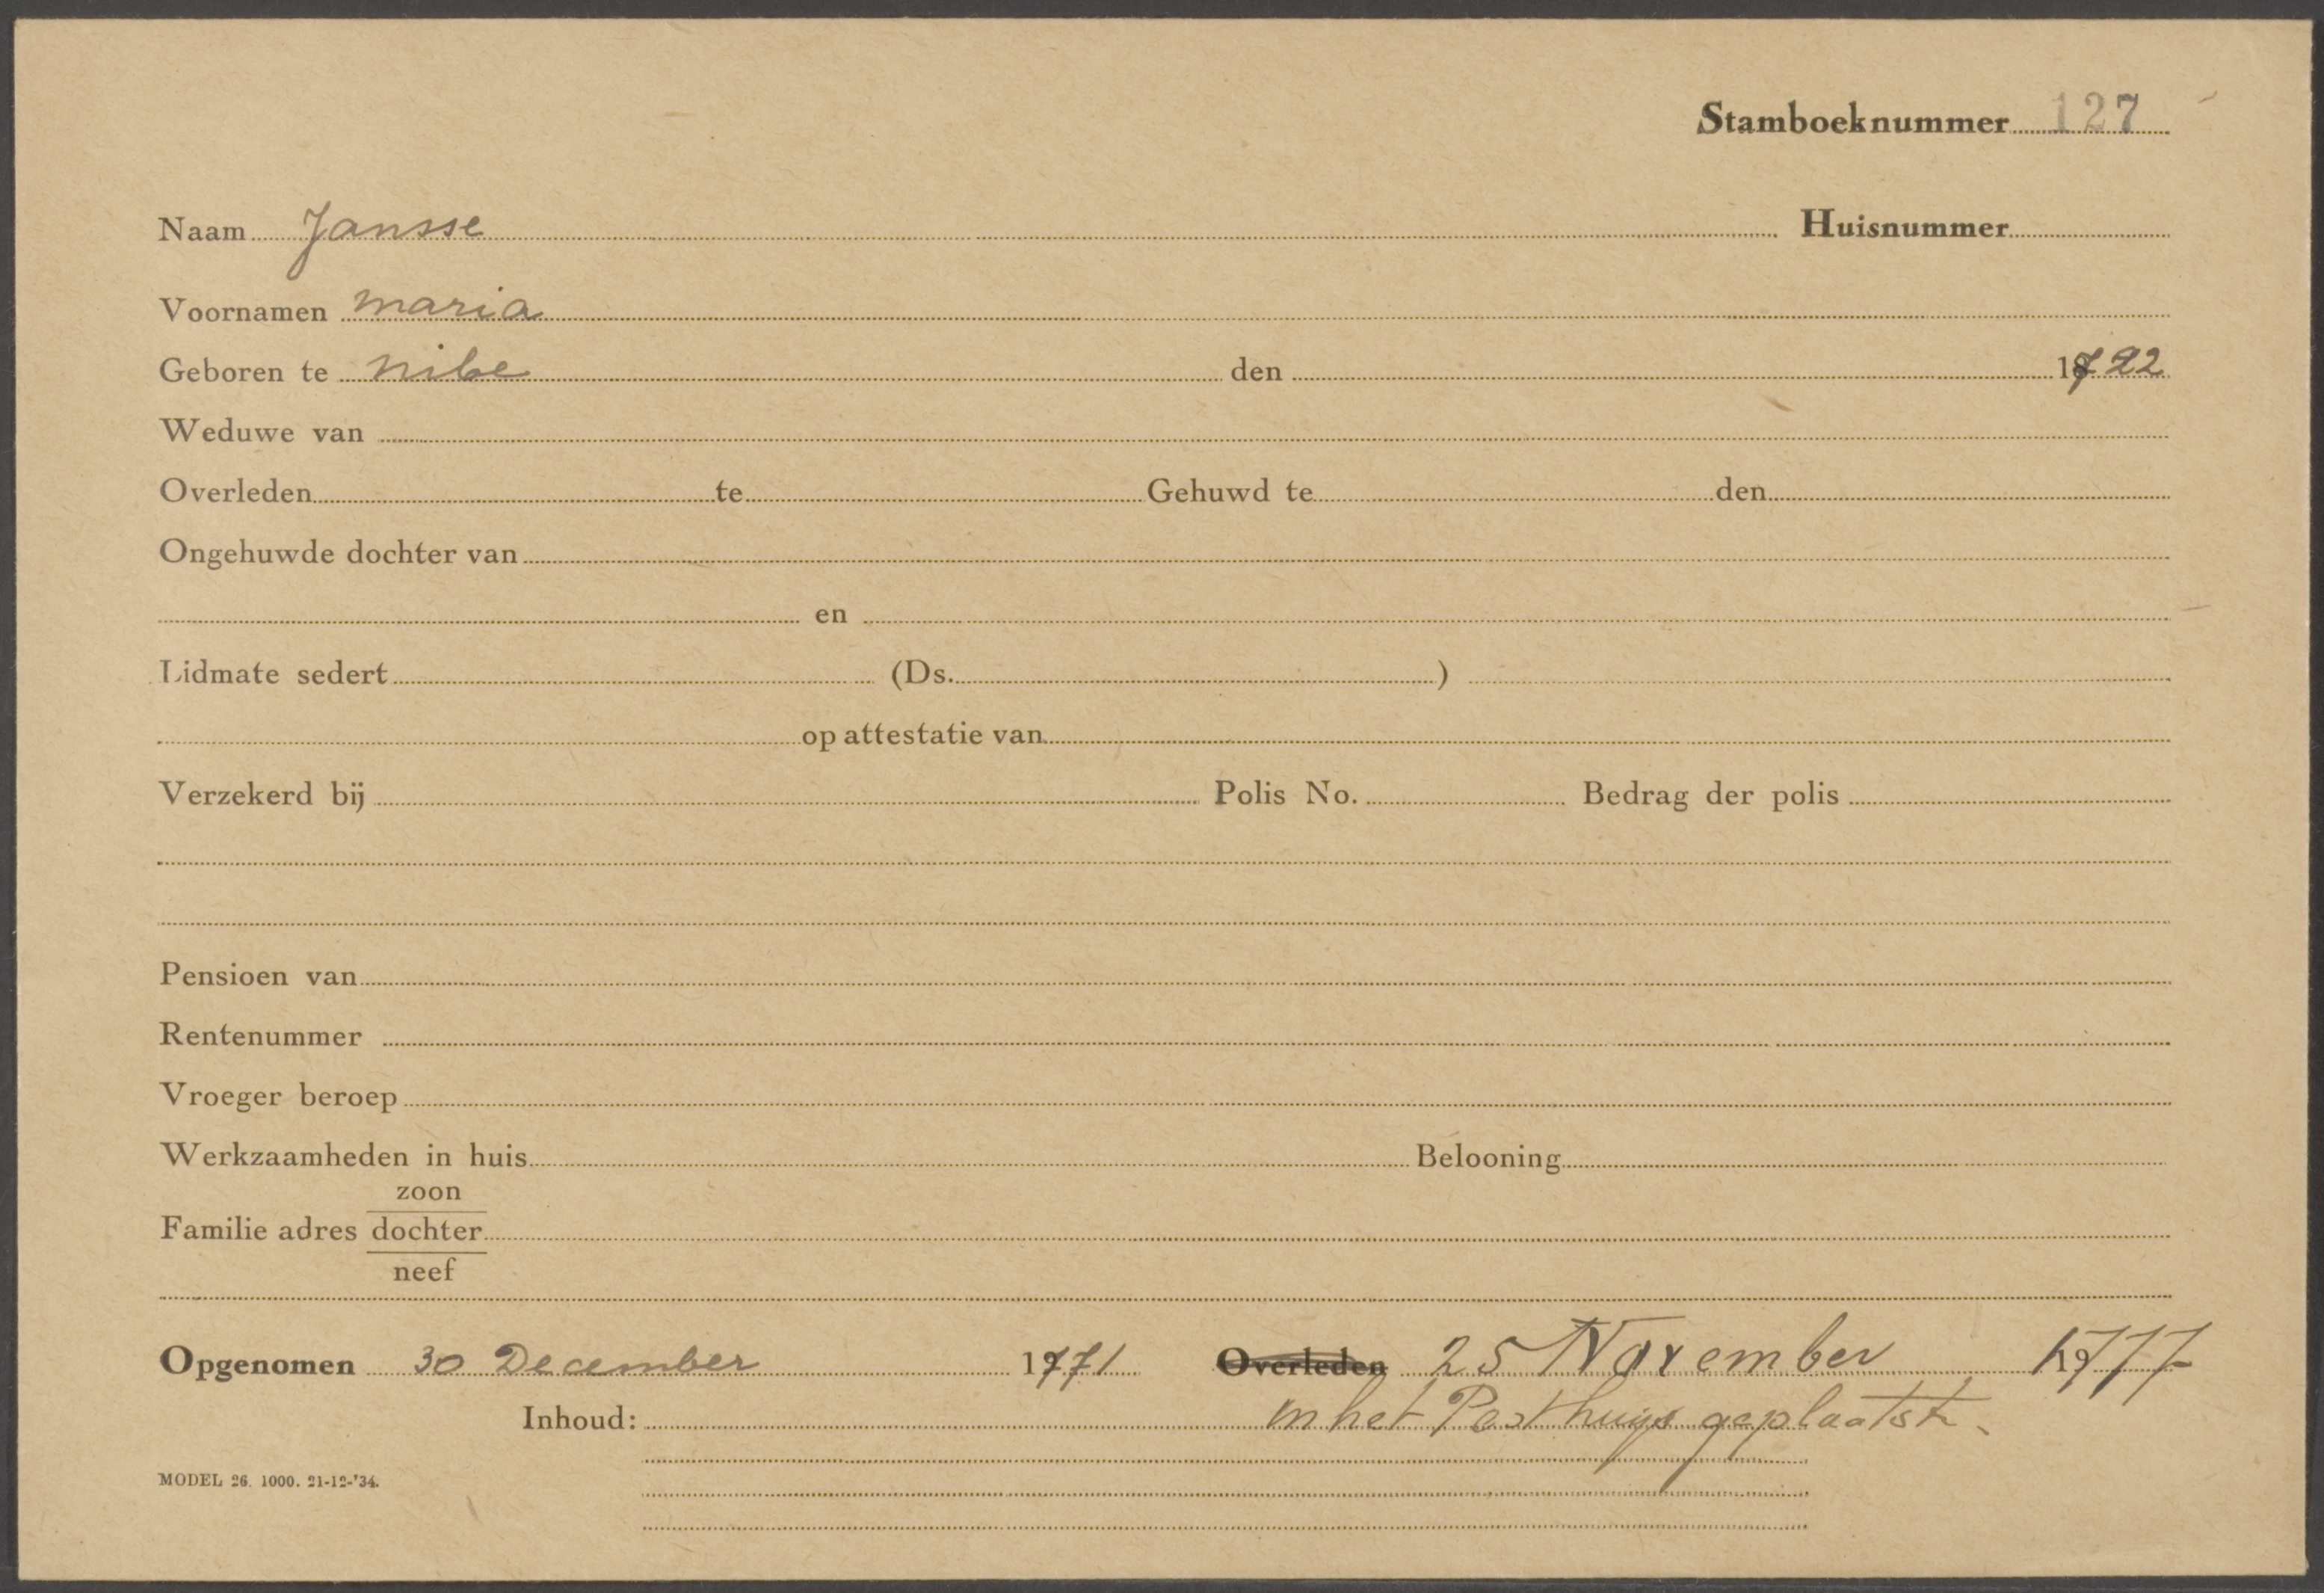 Stamboeknummer 127
Naam Jansse Huisnummer
Voornamen Maria
Geboren te Nibe den 1722
Weduwe van
Overleden te Gehuwd te den
Ongehuwde dochter van
en
Lidmate sedert (Ds. )
op attestatie van
Verzekerd bij Polis No. Bedrag der polis
Pensioen van
Rentenummer
Vroeger beroep
Werkzaamheden in huis Belooning
zoon
Familie adres dochter
neef
Opgenomen 30 December 1771 Overleden 25 November 1777
Inhoud: in het Pesthuys geplaatst.
MODEL 26. 1000. 21-12-'34.